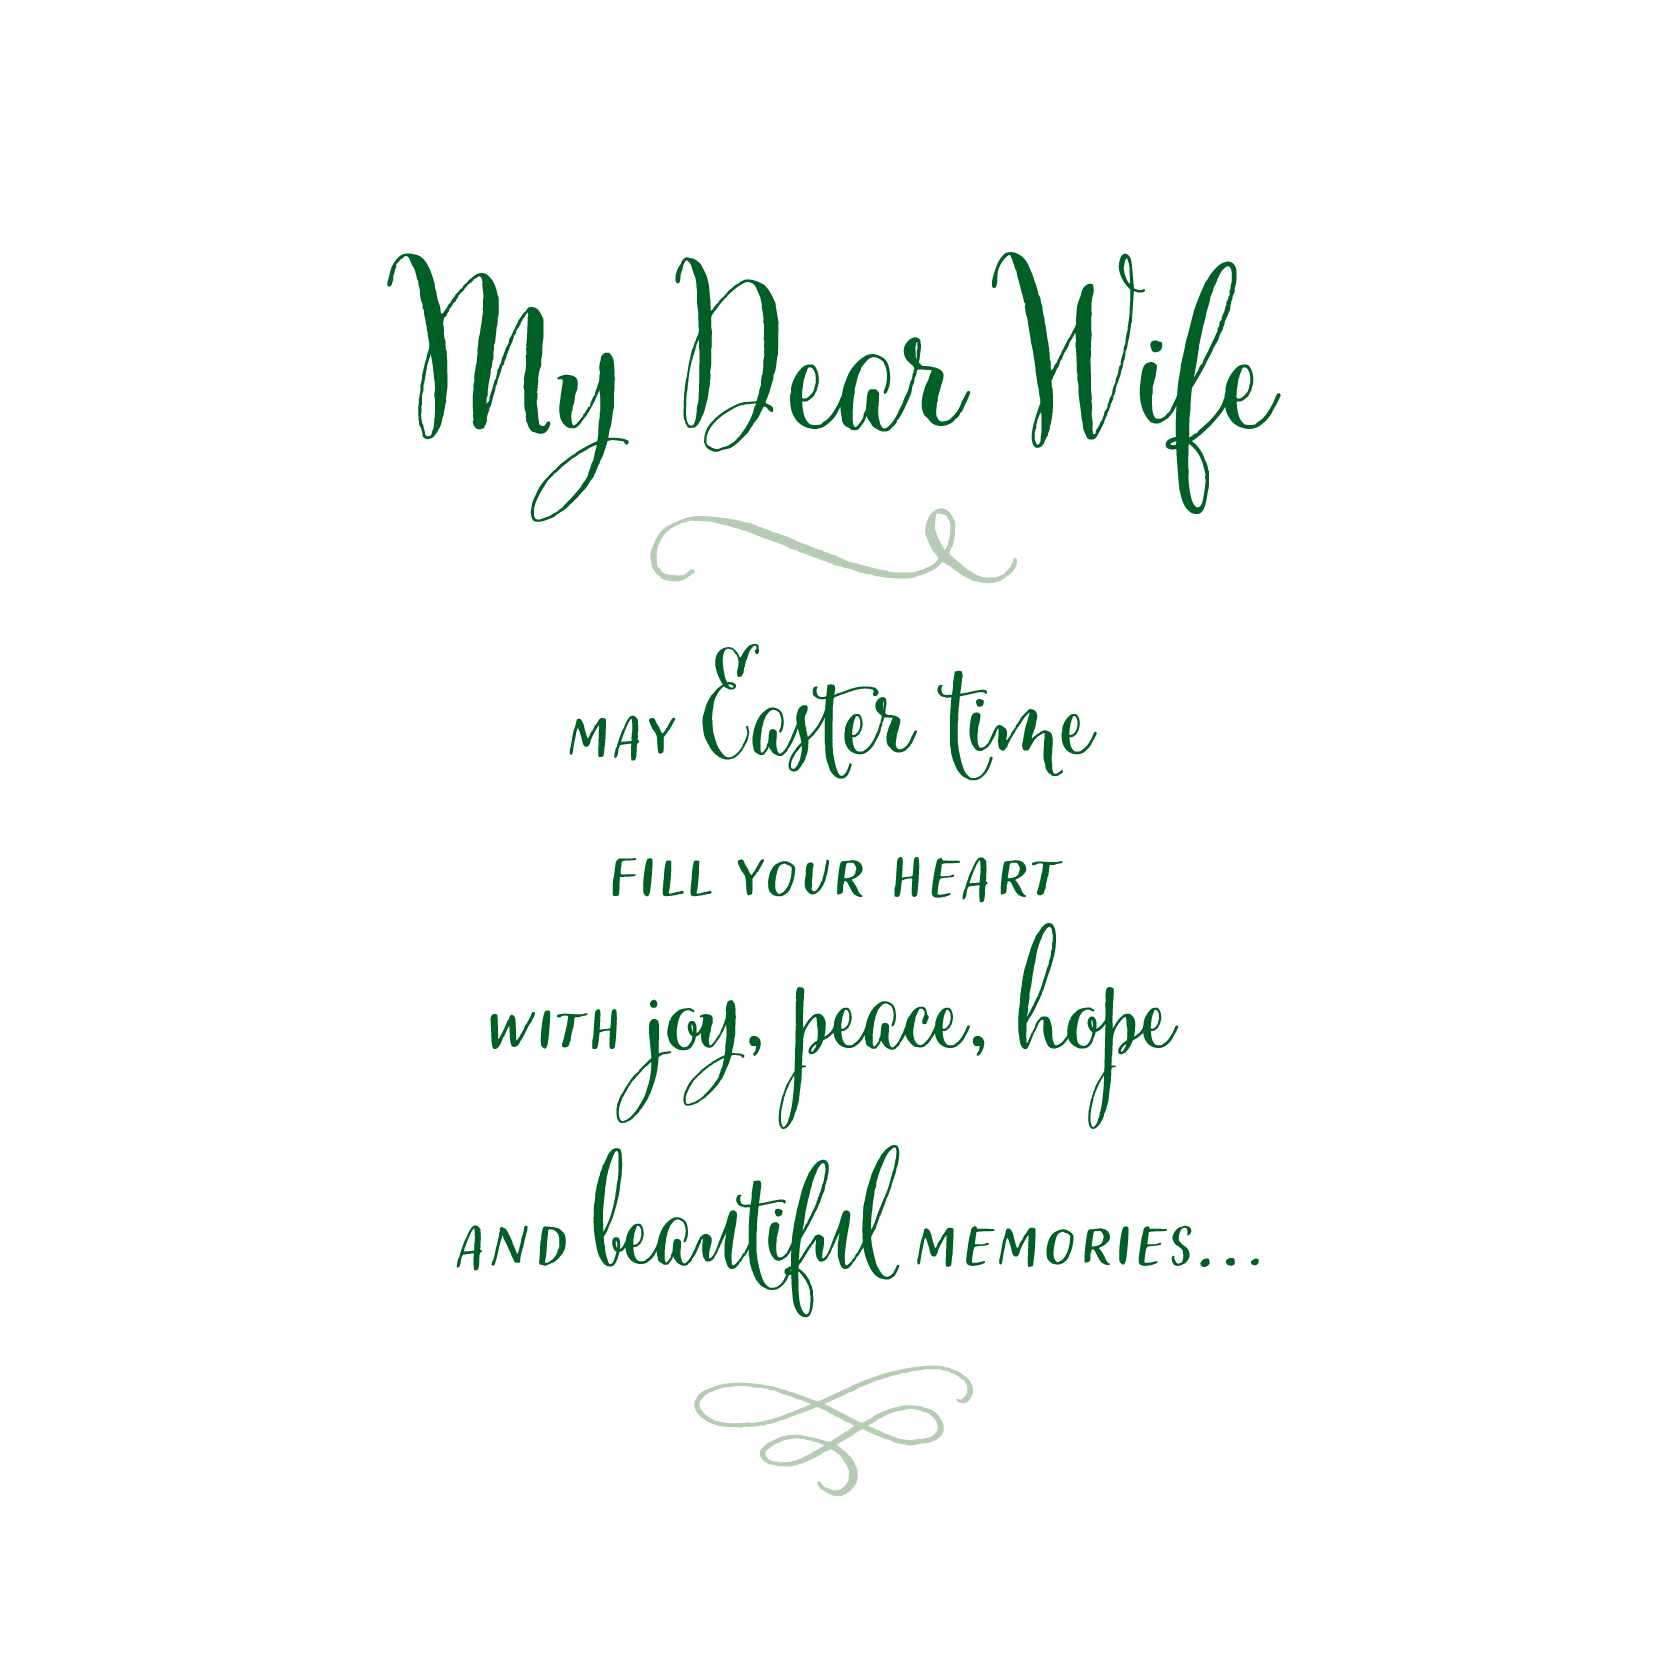 My Dear Wife
MAY Easter time
FILL YOUR HEART
WITH joy, peace, hope
AND beautiful MEMORIES...